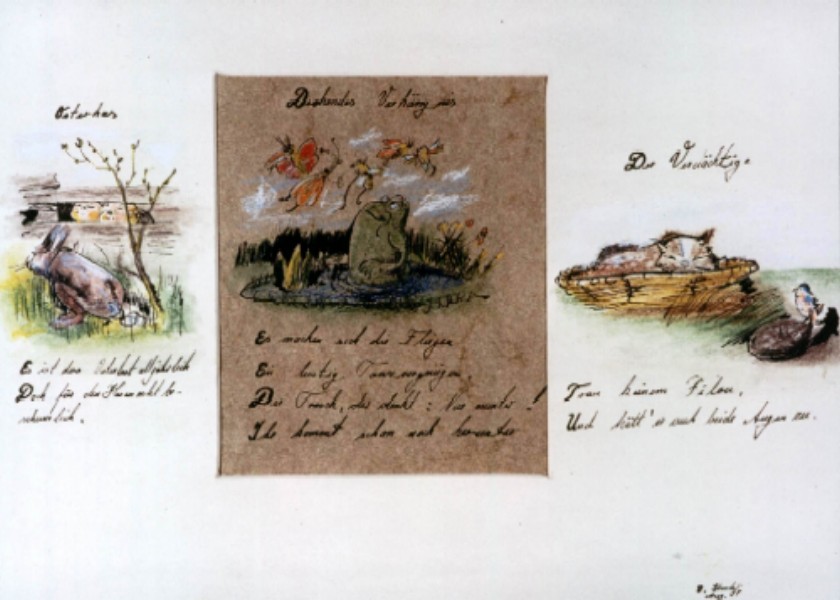 Osterhas
E ist das Osterfest alljährlich
Doch für den Hasen recht be-
schwerlich.
Drohendes Verhängnis
Es machen sich die Fliegen
Ein lustig Tanzvergnügen.
Der Frosch, der denkt: Nur munter!
Ihr kommt schon noch herunter
Der Verdächtige
Trau keinem Filou,
Und hätt's auch beide Augen zu.